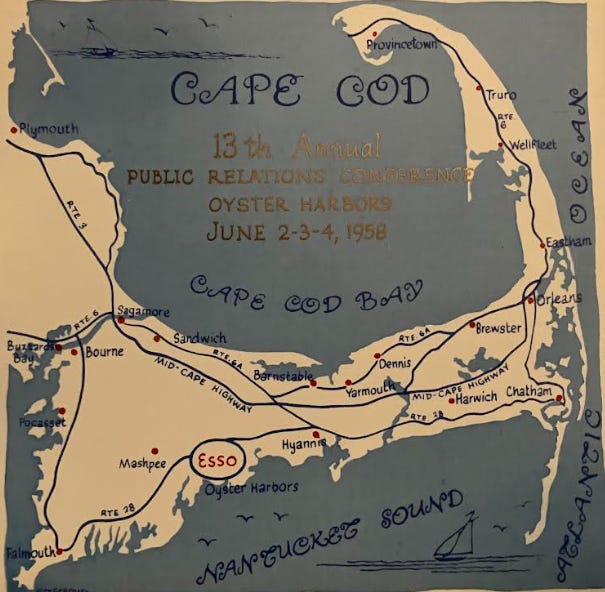 Provincetown
CAPE COD
Truro
RTE. 6
Plymouth
13th Annual
Wellfleet
PUBLIC RELATIONS CONFERENCE
OYSTER HARBORS
JUNE 2-3-4, 1958
RTE 3
OCEAN
Eastham
CAPE COD BAY
Orleans
Sagamore
RTE. 6
Brewster
Sandwich
RTE. 6A
Buzzards
Bay
Bourne
RTE. 6A
Dennis
MID-CAPE HIGHWAY
Barnstable
Yarmouth
MID-CAPE HIGHWAY
Harwich
Chatham
Pocasset
RTE 28
Hyannis
Mashpee
ESSO
Oyster Harbors
RTE 28
NANTUCKET SOUND
ATLANTIC
Falmouth